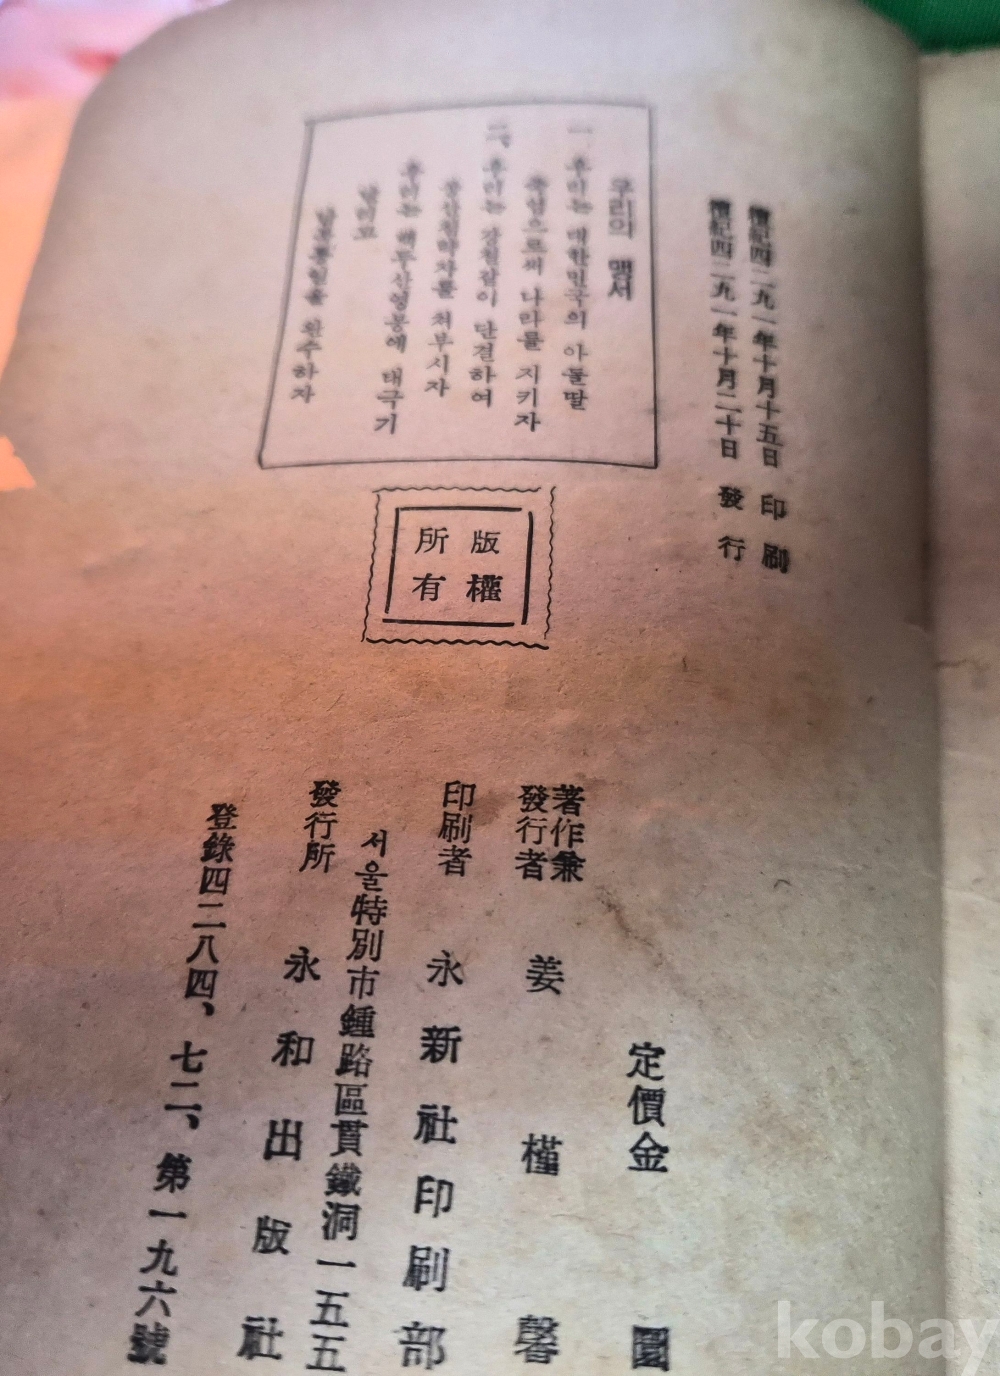 檀紀四二九一年十月十五日 印刷
檀紀四二九一年十月二十日 發行
우리의 맹서
一、우리는 대한민국의 아들딸
죽엄으로써 나라를 지키자
二、우리는 강철같이 단결하여
공산침략자를 쳐부시자
우리는 백두산영봉에 태극기
날리고
남북통일을 완수하자
版權
所有
定價金 圜
著作兼
發行者 姜槿馨
印刷者 永新社印刷部
서울特別市鍾路區貫鐵洞一五五
發行所 永和出版社
登錄四二八四、七二、第一九六號
kobay